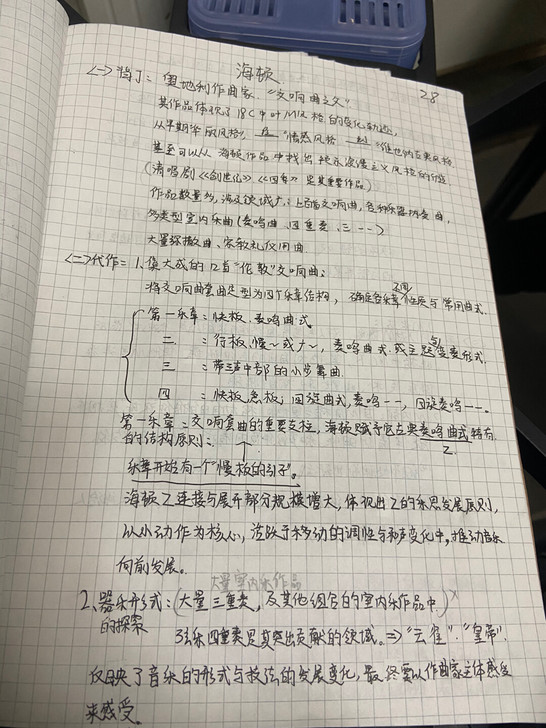 海顿
28
<一>简介: 奥地利作曲家. "交响曲之父"
其作品体现了18C中叶风格的变化轨迹,
从早期华丽风格, 至 "情感风格" 到 维也纳古典风格
甚至可以从海顿作品中找出
(清唱剧《创世纪》《四季》是其重要作品)
作品数量多, 涉及领域广: 上百首交响曲, 各种乐器协奏曲,
多类型室内乐曲(奏鸣曲. 四重奏. 三 --)
大量弥撒曲、宗教礼仪用曲
<二>代作: 1. 集大成的12首"伦敦"交响曲:
将交响曲套曲定型为四个乐章结构, 确定各乐章之间性质与常用曲式.
第一乐章: 快板. 奏鸣曲式.
二 : 行板, 慢~或广~, 奏鸣曲式. 或主题与变奏形式,
三 : 带三声中部的小步舞曲.
四 : 快板, 急板; 回旋曲式, 奏鸣--, 回旋奏鸣--.
第一乐章: 交响套曲的重要支柱, 海顿赋予它古典奏鸣曲式特有
的结构原则:
乐章开始有一个"慢板的引子".
海顿Z连接与展开部分规模增大, 体现出Z的乐思发展原则,
以小动作为核心, 活跃于移动的调性与和声变化中, 推动音乐
向前发展.
大量室内乐作品
2、器乐形式: (大量三重奏, 及其他组合的室内乐作品中)
的探索
弦乐四重奏是其突出贡献的领域. ⇒ "云雀". "皇帝".
仅映了音乐的形式与技法的发展变化, 最终要以作曲家主体感受
来感受.